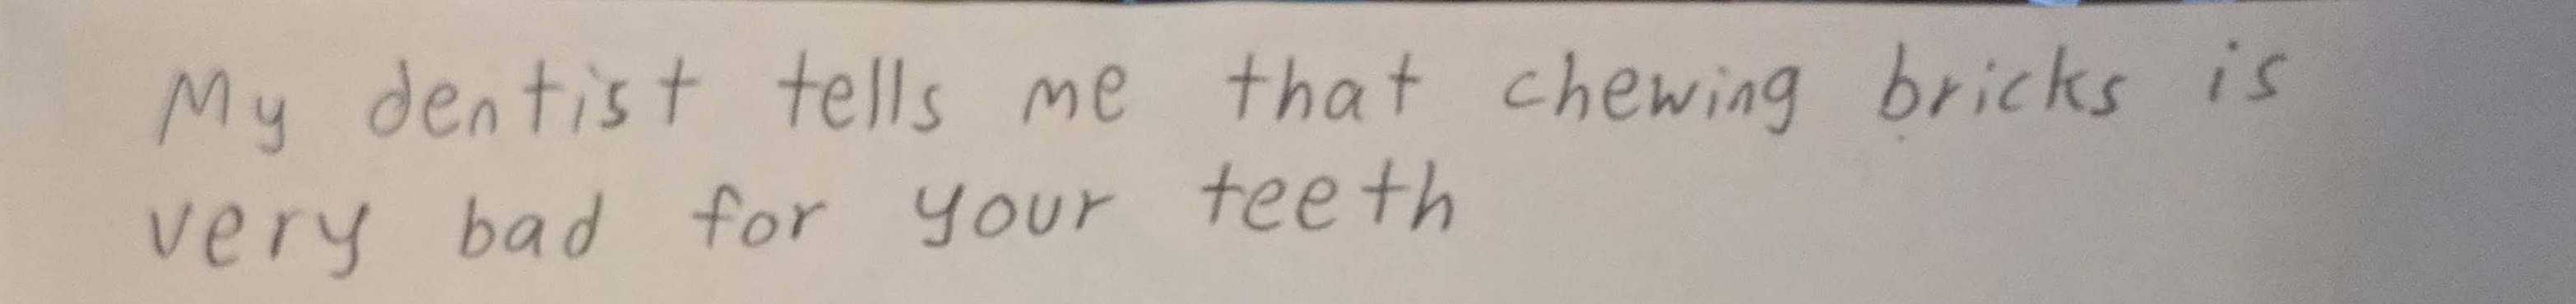 My dentist tells me that chewing bricks is
very bad for your teeth